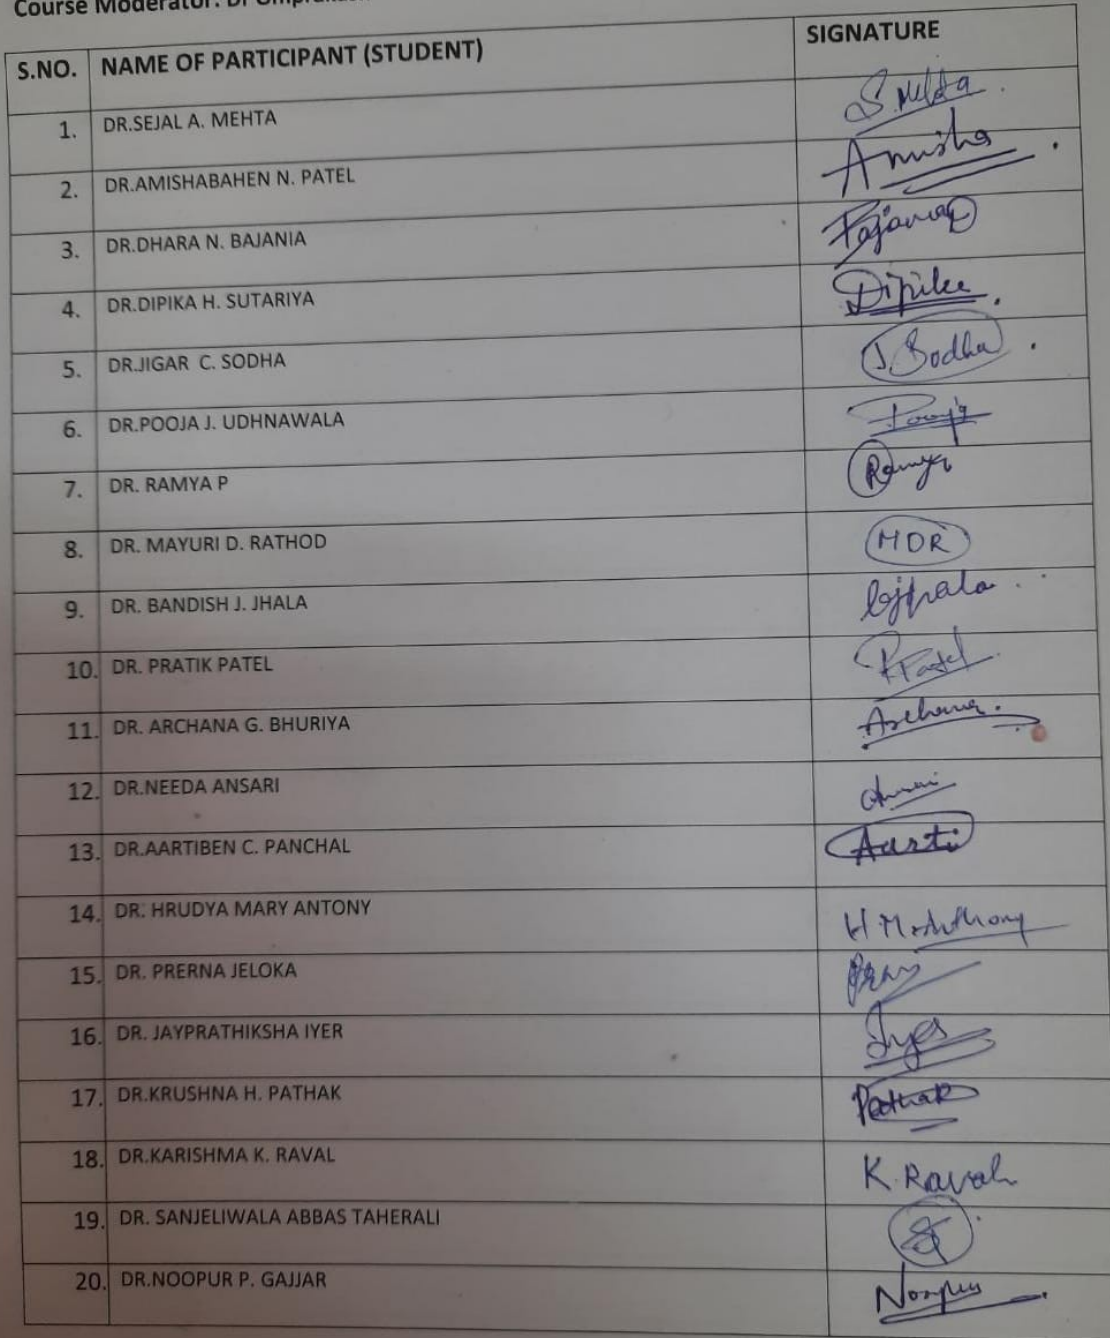 Course Moderator: Dr
S.NO. NAME OF PARTICIPANT (STUDENT) SIGNATURE
1. DR.SEJAL A. MEHTA S. Mehta
2. DR.AMISHABAHEN N. PATEL Amisha
3. DR.DHARA N. BAJANIA
4. DR.DIPIKA H. SUTARIYA Dipika
5. DR.JIGAR C. SODHA J. Sodha
6. DR.POOJA J. UDHNAWALA Pooja
7. DR. RAMYA P Ramya
8. DR. MAYURI D. RATHOD MDR
9. DR. BANDISH J. JHALA
10. DR. PRATIK PATEL P Patel
11. DR. ARCHANA G. BHURIYA Archana.
12. DR.NEEDA ANSARI
13. DR.AARTIBEN C. PANCHAL Aarti
14. DR. HRUDYA MARY ANTONY H.M. Anthony
15. DR. PRERNA JELOKA
16. DR. JAYPRATHIKSHA IYER Iyer
17. DR.KRUSHNA H. PATHAK Pathak
18. DR.KARISHMA K. RAVAL K. Raval
19. DR. SANJELIWALA ABBAS TAHERALI
20. DR.NOOPUR P. GAJJAR Noopur